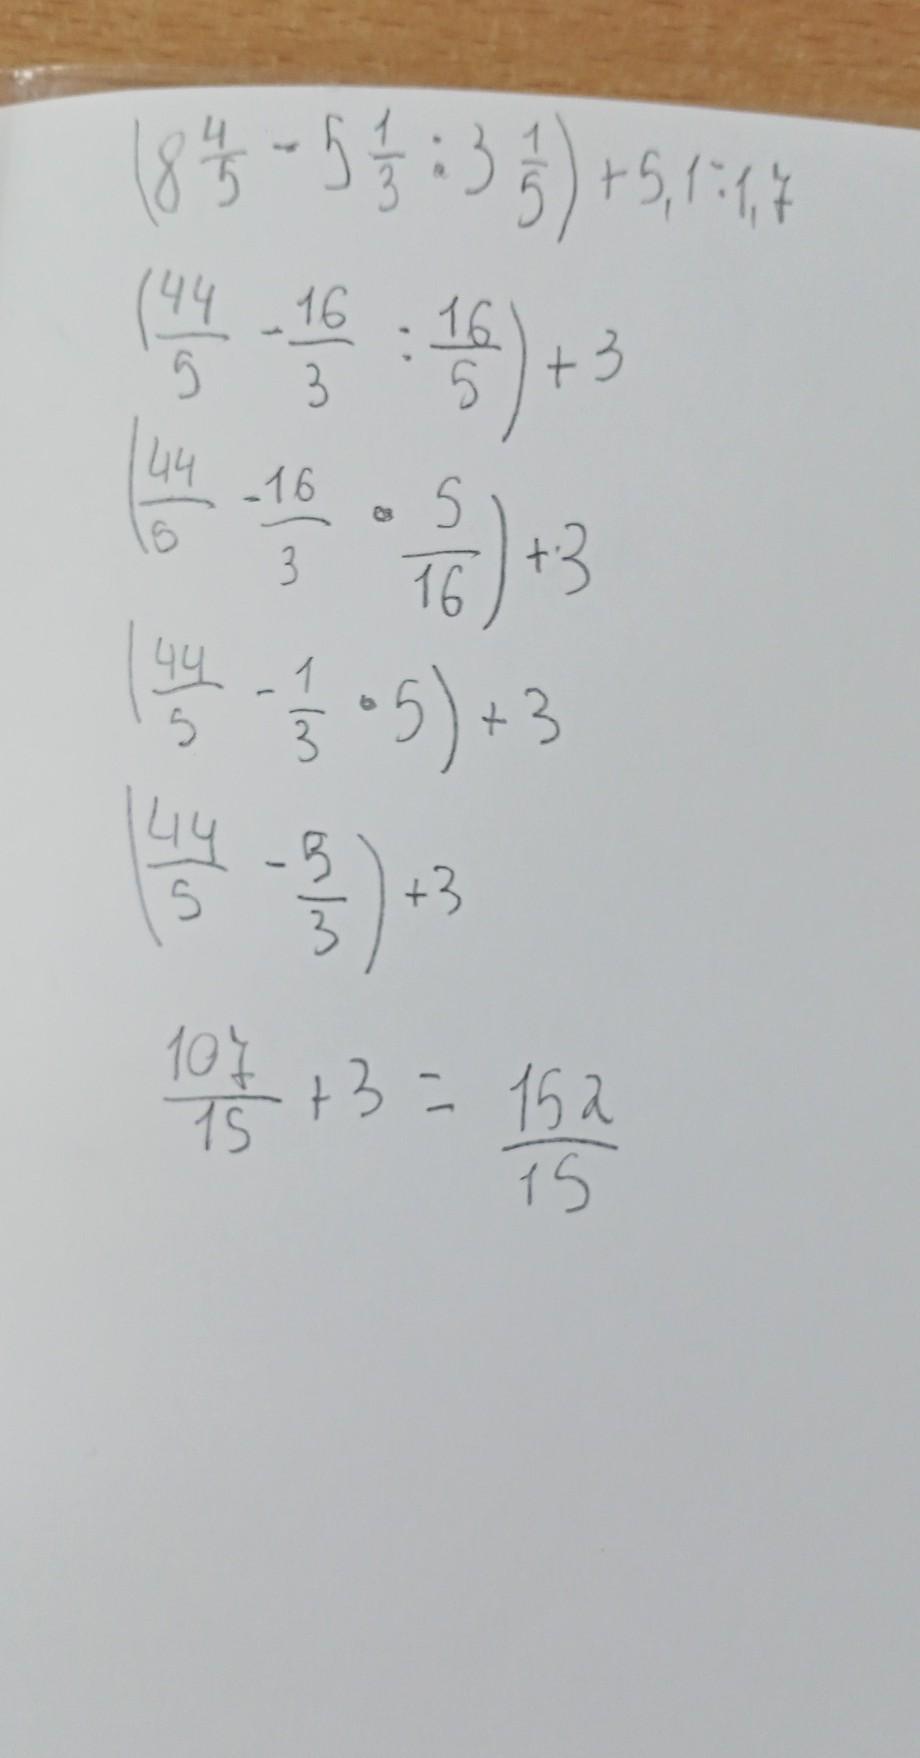 (8 4/5 - 5 1/3 : 3 1/5) + 5,1 : 1,7
(44/5 - 16/3 : 16/5) + 3
(44/5 - 16/3 · 5/16) + 3
(44/5 - 1/3 · 5) + 3
(44/5 - 5/3) + 3
107/15 + 3 = 152/15